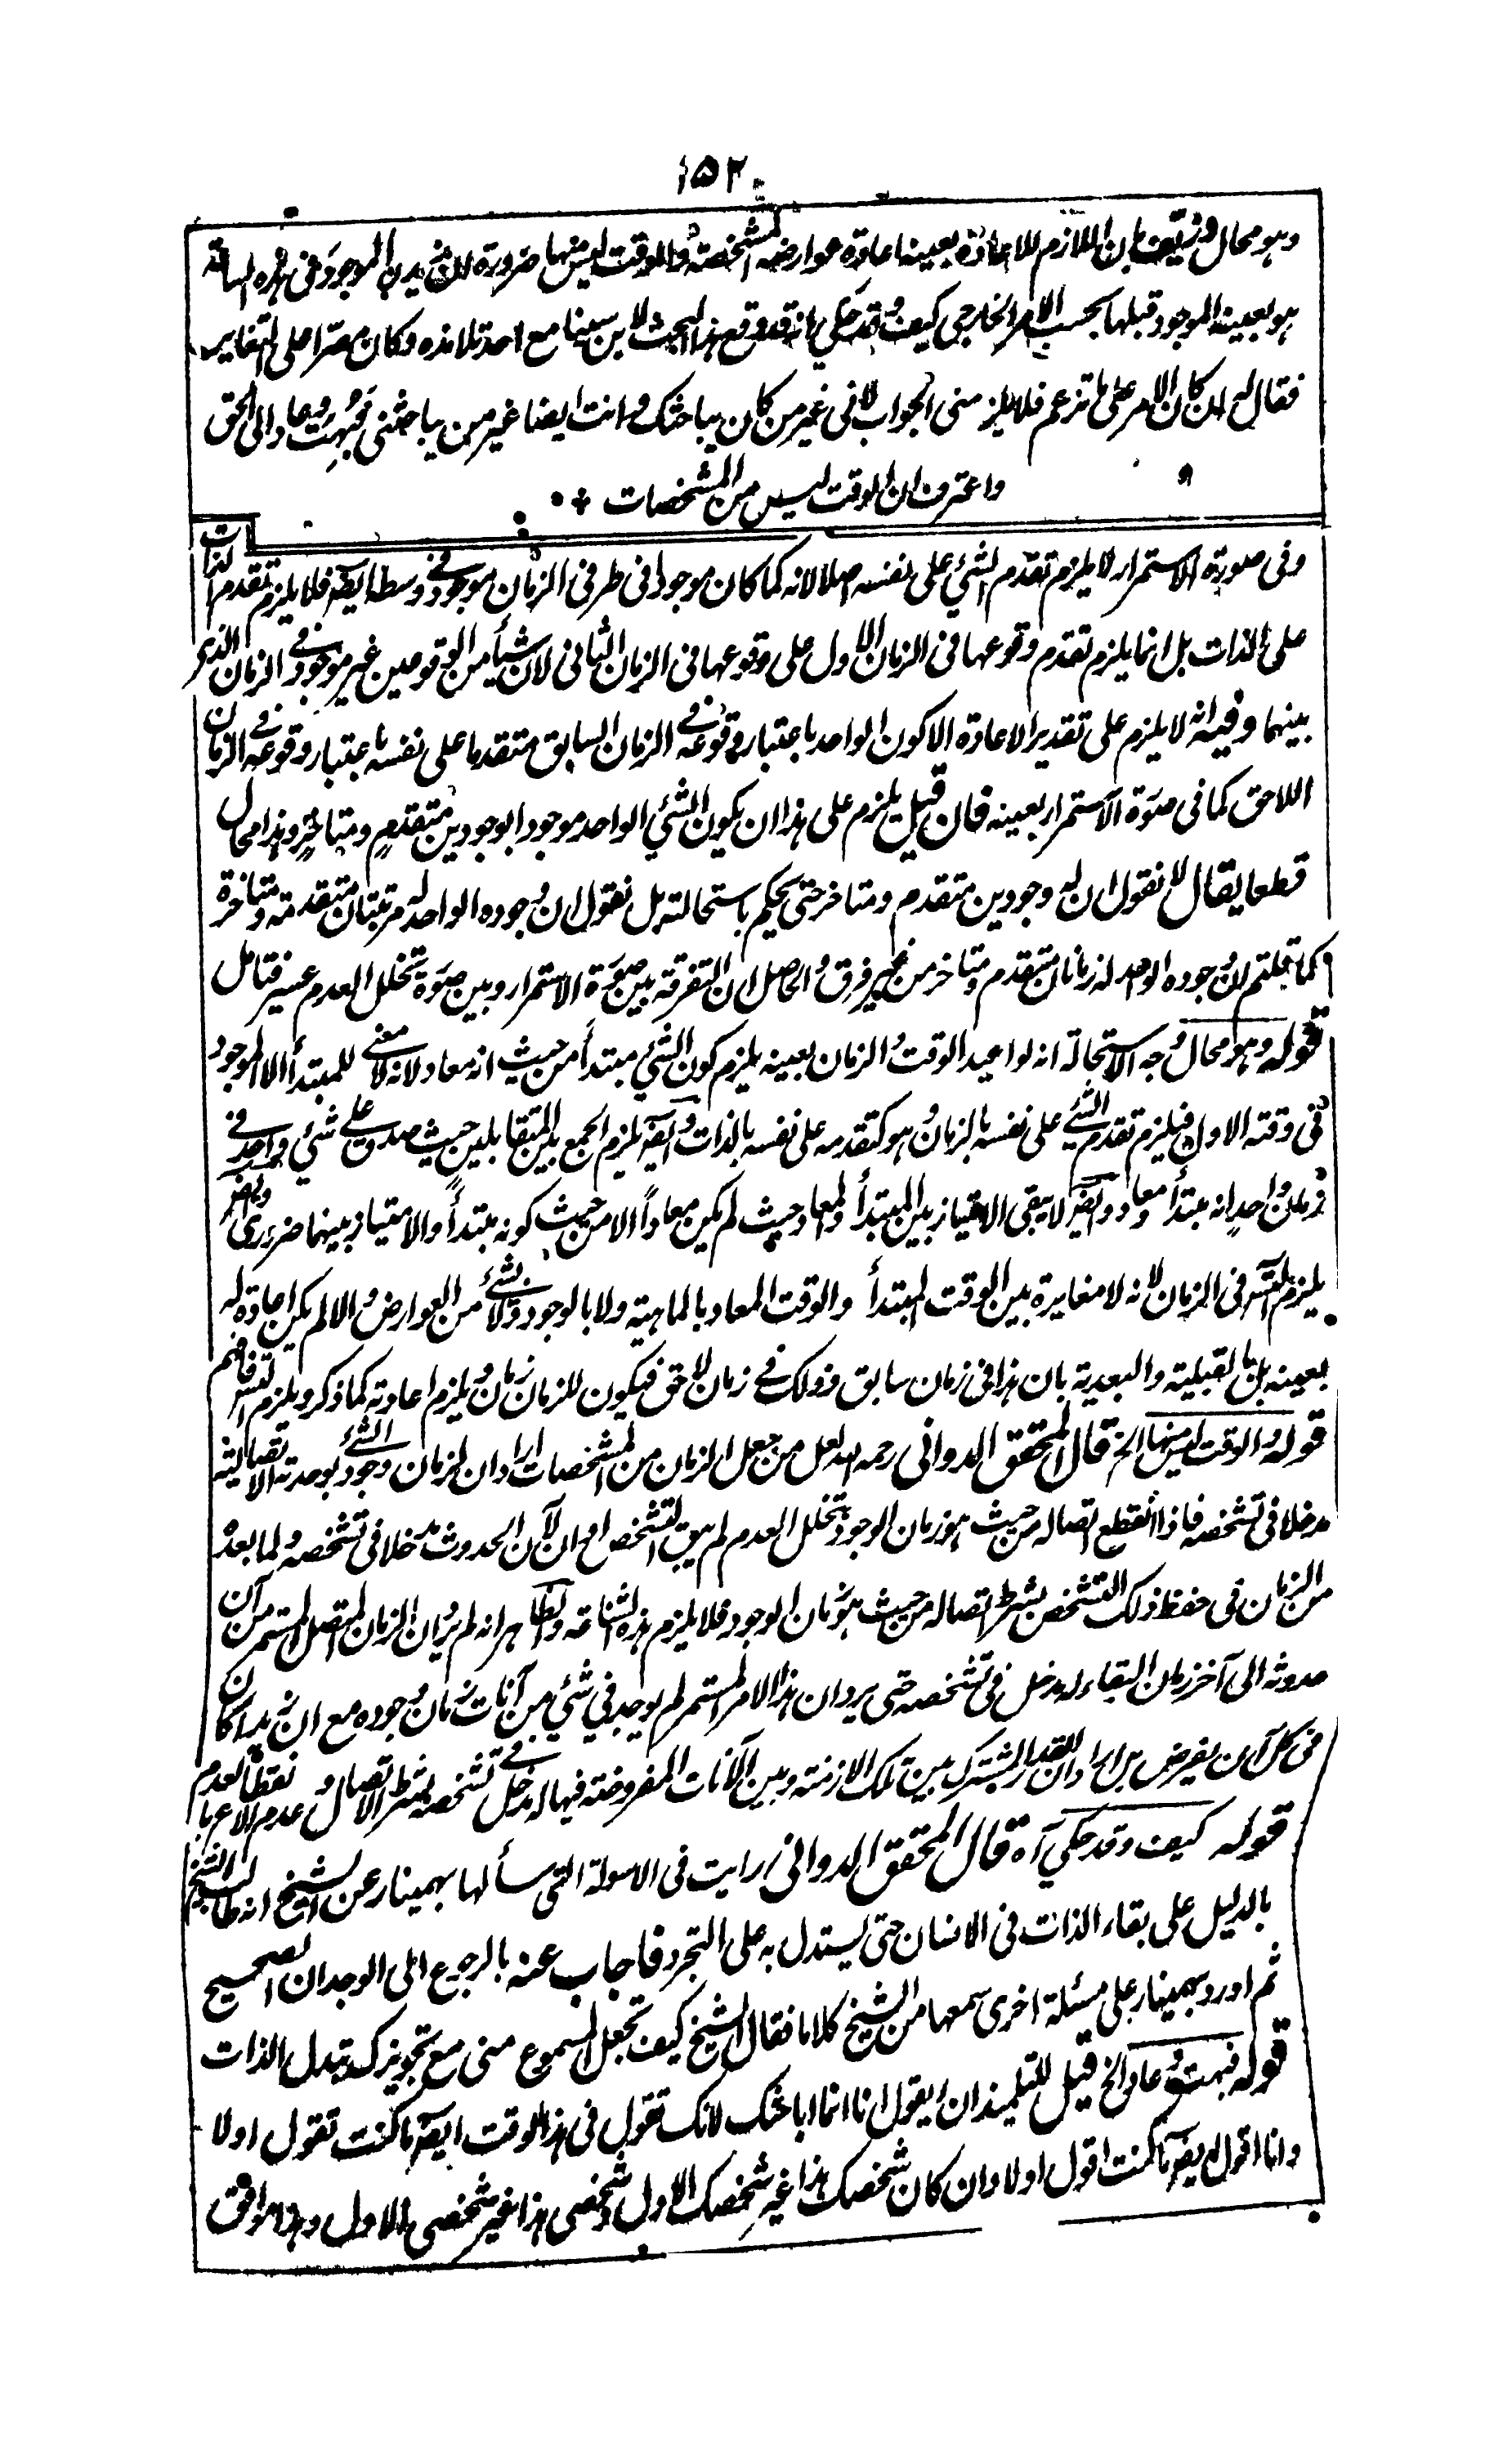 ١٥٢
وهو محال وزيف بان اللازم للاعادة بعينه اعادة عوارضه المشخصة والوقت ليس منها ضرورة ان زيدن الموجود فى هذه الساعة
هو بعينه الموجود قبلها بحسب الامر الخارجى كيف وقد حكي انه قد وقع هذا البحث لابن سينا مع احد تلامذه وكان مصرا على التغاير
فقال له ان كان الامر على ما تزعم فلا يلزمنى الجواب لانى غير من كان يباحثك وانت ايضا غير من يباحثنى فبهت وعاد الى الحق
واعترف ان الوقت ليس من المشخصات
وفى صورة الاستمرار لا يلزم تقدم الشئ على نفسه اصلا لانه كما كان موجودا فى طرفى الزمان موجود فى وسطه ايضا فلا يلزم تقدم الذات
على الذات بل انما يلزم تقدم وقوعها فى الزمان الاول على وقوعها فى الزمان الثانى لان شيأ من الوقوعين غير موجود فى الزمان الذى
بينهما وفيه انه لا يلزم على تقدير الاعادة الا كون الواحد باعتبار وقوعه فى الزمان السابق متقدما على نفسه باعتبار وقوعه فى الزمان
اللاحق كما فى صورة الاستمرار بعينه فان قيل يلزم على هذا ان يكون الشئ الواحد موجودا بوجودين متقدم ومتاخر وهذا محال
قطعا يقال لا نقول ان له وجودين متقدم ومتاخر حتى يحكم باستحالته بل نقول ان وجوده الواحد له مرتبتان متقدمة ومتاخرة
كما قلتم ان وجوده الواحد له زمانان متقدم ومتاخر من غير فرق والحاصل ان التفرقة بين صورة الاستمرار وبين صورة تخلل العدم عسير فتامل
قوله وهو محال وجه الاستحالة انه لو اعيد الوقت والزمان بعينه يلزم كون الشئ مبتدأ من حيث انه معاد لانه لا معنى للمبتدأ الا الموجود
فى وقته الاول فيلزم تقدم الشئ على نفسه بالزمان وهو كتقدمه على نفسه بالذات وايضا يلزم الجمع بين المتقابلين حيث صدق على شئ واحد فى
زمان واحد انه مبتدأ ومعاد وايضا لا يبقى الامتياز بين المبتدأ والمعاد حيث لم يكن معاداً الا من حيث كونه مبتدأ والامتياز بينهما ضرورى وايضا
يلزم التسلسل فى الزمان لانه لا مغايرة بين الوقت المبتدأ والوقت المعاد بالماهية ولا بالوجود ولا بشئ من العوارض والا لم يكن اعادة له
بعينه بل بالقبلية والبعدية بان هذا فى زمان سابق وذلك فى زمان لاحق فيكون للزمان زمان ويلزم اعادته كما ذكر ويلزم التسلسل فافهم
قوله والوقت ليس منها الخ قال المحقق الدوانى رحمه الله لعل من جعل الزمان من المشخصات اراد ان لزمان وجود الشئ بوحدته الاتصالية
مدخلا فى تشخصه فاذا انقطع اتصاله من حيث هو زمان الوجود بتخلل العدم لم يبق التشخص او ان لآن الحدوث مدخلا فى تشخصه ولما بعده
من الزمان فى حفظ ذلك التشخص بشرط اتصاله من حيث هو زمان الوجود فلا يلزم هذه الشناعة والظاهر انه لم يرد ان الزمان المتصل المستمر من آن
حدوثه الى آخر زمان البقاء له مدخل فى تشخصه حتى يرد ان هذا الامر المستمر لم يوجد فى شئ من آنات زمان وجوده مع ان زيدا كان
فى كل آن يفرض بل اراد ان القدر المشترك بين تلك الازمنة وبين الآنات المفروضة فيها له مدخل فى تشخصه بشرط الاتصال وعدم الانقطاع بالعدم
قوله كيف وقد حكي آه قال المحقق الدوانى رايت فى الاسولة التى سألها بهمينار عن الشيخ انه طالب الشيخ
بالدليل على بقاء الذات فى الانسان حتى يستدل به على التجرد فاجاب عنه بالرجوع الى الوجدان الصحيح
ثم اورد بهمينار على مسئلة اخرى سمعها من الشيخ كلاما فقال الشيخ كيف تجعل المسموع منى مع تجويزك تبدل الذات
قوله فبهت وعاد الخ قيل للتلميذ ان يقول انا انما اباحثك لانك تقول فى هذا الوقت ايضا ما كنت تقول اولا
وانا اقول ايضا ما كنت اقول اولا وان كان شخصك هذا غير شخصك الاول وشخصى هذا غير شخصى الاول وهذا موافق